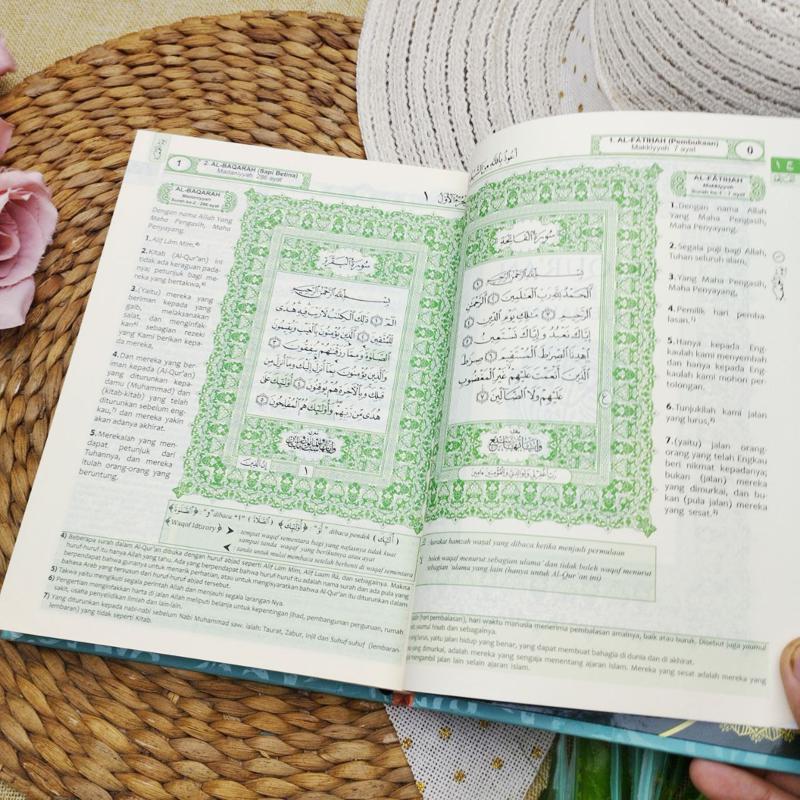 1. AL-FĀTIḤAH (Pembukaan)
Makkiyyah 7 ayat
0
AL-FĀTIḤAH
Makkiyyah
Surah ke-1 : 7 ayat
1. Dengan nama Allah
Yang Maha Pengasih,
Maha Penyayang.
2. Segala puji bagi Allah,
Tuhan seluruh alam,
3. Yang Maha Pengasih,
Maha Penyayang,
4. Pemilik hari pemba-
lasan.
5. Hanya kepada Eng-
kaulah kami menyembah
dan hanya kepada Eng-
kaulah kami mohon per-
tolongan.
6. Tunjukilah kami jalan
yang lurus,
7. (yaitu) jalan orang-
orang yang telah Engkau
beri nikmat kepadanya;
bukan (jalan) mereka
yang dimurkai, dan bu-
kan (pula jalan) mereka
yang sesat.
سُورَةُ الْفَاتِحَةِ
بِسْمِ اللَّهِ الرَّحْمَٰنِ الرَّحِيمِ
الْحَمْدُ لِلَّهِ رَبِّ الْعَالَمِينَ ۝ الرَّحْمَٰنِ
الرَّحِيمِ ۝ مَالِكِ يَوْمِ الدِّينِ ۝
إِيَّاكَ نَعْبُدُ وَإِيَّاكَ نَسْتَعِينُ ۝
اهْدِنَا الصِّرَاطَ الْمُسْتَقِيمَ ۝ صِرَاطَ
الَّذِينَ أَنْعَمْتَ عَلَيْهِمْ غَيْرِ الْمَغْضُوبِ
عَلَيْهِمْ وَلَا الضَّالِّينَ ۝
harakat hamzah waṣal yang dibaca ketika menjadi permulaan
boleh waqaf menurut sebagian ulama' dan tidak boleh waqaf menurut
sebagian 'ulama yang lain (hanya untuk Al-Qur'an ini)
(hari pembalasan), hari waktu manusia menerima pembalasan amalnya, baik atau buruk. Disebut juga yaumul
yaumul ḥisab dan sebagainya.
lurus, yaitu jalan hidup yang benar, yang dapat membuat bahagia di dunia dan di akhirat.
yang dimurkai, adalah mereka yang sengaja menentang ajaran Islam. Mereka yang sesat adalah mereka yang
mengambil jalan lain selain ajaran Islam.
1
2. AL-BAQARAH (Sapi Betina)
Madaniyyah 286 ayat
AL-BAQARAH
Madaniyyah
Surah ke-2 : 286 ayat
Dengan nama Allah Yang
Maha Pengasih, Maha
Penyayang.
1. Alif Lām Mīm.4)
2. Kitab (Al-Qur'an) ini
tidak ada keraguan pada-
nya; petunjuk bagi me-
reka yang bertakwa,5)
3. (Yaitu) mereka yang
beriman kepada yang
gaib, melaksanakan
salat, dan menginfak-
kan6) sebagian rezeki
yang Kami berikan kepa-
da mereka,
4. Dan mereka yang ber-
iman kepada (Al-Qur'an)
yang diturunkan kepa-
damu (Muhammad) dan
(kitab-kitab) yang telah
diturunkan sebelum eng-
kau,7) dan mereka yakin
akan adanya akhirat.
5. Merekalah yang men-
dapat petunjuk dari
Tuhannya, dan mereka
itulah orang-orang yang
beruntung.
سُورَةُ الْبَقَرَةِ
بِسْمِ اللَّهِ الرَّحْمَٰنِ الرَّحِيمِ
الٓمٓ ۝ ذَٰلِكَ الْكِتَابُ لَا رَيْبَ فِيهِ هُدًى
لِلْمُتَّقِينَ ۝ الَّذِينَ يُؤْمِنُونَ بِالْغَيْبِ وَيُقِيمُونَ
الصَّلَاةَ وَمِمَّا رَزَقْنَاهُمْ يُنْفِقُونَ ۝
وَالَّذِينَ يُؤْمِنُونَ بِمَا أُنْزِلَ إِلَيْكَ وَمَا أُنْزِلَ مِنْ
قَبْلِكَ وَبِالْآخِرَةِ هُمْ يُوقِنُونَ ۝ أُولَٰئِكَ عَلَىٰ
هُدًى مِنْ رَبِّهِمْ وَأُولَٰئِكَ هُمُ الْمُفْلِحُونَ ۝
١
dibaca pendek
dibaca
Waqaf Idtirory
tempat waqaf sementara bagi yang nafasnya tidak kuat
sampai tanda waqaf yang berikutnya atau ayat
tanda untuk mulai membaca setelah berhenti di waqaf sementara
4) Beberapa surah dalam Al-Qur'an dibuka dengan huruf abjad seperti Alif Lām Mīm, Alif Lām Rā, dan sebagainya. Makna
huruf-huruf itu hanya Allah yang tahu. Ada yang berpendapat bahwa huruf-huruf itu adalah nama surah dan ada pula yang
berpendapat bahwa gunanya untuk menarik perhatian, atau untuk mengisyaratkan bahwa Al-Qur'an itu diturunkan dalam
bahasa Arab yang tersusun dari huruf-huruf abjad tersebut.
5) Takwa yaitu mengikuti segala perintah Allah dan menjauhi segala larangan-Nya.
6) Pengertian menginfakkan harta di jalan Allah meliputi belanja untuk kepentingan jihad, pembangunan perguruan, rumah
sakit, usaha penyelidikan ilmiah dan lain-lain.
7) Yang diturunkan kepada nabi-nabi sebelum Nabi Muhammad saw. ialah: Taurat, Zabur, Injil dan Suhuf-suhuf (lembaran-
lembaran) yang tidak seperti Kitab.